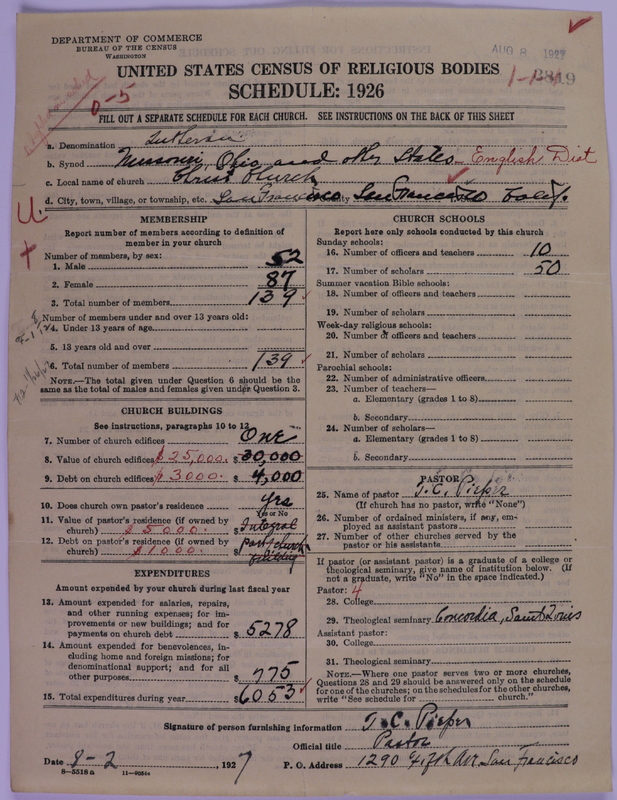 DEPARTMENT OF COMMERCE
BUREAU OF THE CENSUS
WASHINGTON
AUG 8 1927
UNITED STATES CENSUS OF RELIGIOUS BODIES
SCHEDULE: 1926
0-5
FILL OUT A SEPARATE SCHEDULE FOR EACH CHURCH. SEE INSTRUCTIONS ON THE BACK OF THIS SHEET
a. Denomination Lutheran
b. Synod Missouri, Ohio and other States - English Dist
c. Local name of church Christ Church
d. City, town, village, or township, etc. San Francisco County San Francisco Calif.
U.
MEMBERSHIP
Report number of members according to definition of
member in your church
Number of members, by sex:
1. Male 52
2. Female 87
3. Total number of members 139
Number of members under and over 13 years old:
4. Under 13 years of age
5. 13 years old and over
6. Total number of members 139
NOTE.—The total given under Question 6 should be the
same as the total of males and females given under Question 3.
CHURCH BUILDINGS
See instructions, paragraphs 10 to 12
7. Number of church edifices One
8. Value of church edifices $25,000. $30,000
9. Debt on church edifices $3000. $4,000
10. Does church own pastor's residence yes
Yes or No
11. Value of pastor's residence (if owned by
church) $5000. $ Integral
12. Debt on pastor's residence (if owned by
church) $1000. $ part church
building
EXPENDITURES
Amount expended by your church during last fiscal year
13. Amount expended for salaries, repairs,
and other running expenses; for im-
provements or new buildings; and for
payments on church debt $5278
14. Amount expended for benevolences, in-
cluding home and foreign missions; for
denominational support; and for all
other purposes $775
15. Total expenditures during year $6053
CHURCH SCHOOLS
Report here only schools conducted by this church
Sunday schools:
16. Number of officers and teachers 10
17. Number of scholars 50
Summer vacation Bible schools:
18. Number of officers and teachers
19. Number of scholars
Week-day religious schools:
20. Number of officers and teachers
21. Number of scholars
Parochial schools:
22. Number of administrative officers
23. Number of teachers—
a. Elementary (grades 1 to 8)
b. Secondary
24. Number of scholars—
a. Elementary (grades 1 to 8)
b. Secondary
PASTOR
25. Name of pastor T.C. Pieper
(If church has no pastor, write "None")
26. Number of ordained ministers, if any, em-
ployed as assistant pastors
27. Number of other churches served by the
pastor or his assistants
If pastor (or assistant pastor) is a graduate of a college or
theological seminary, give name of institution below. (If
not a graduate, write "No" in the space indicated.)
Pastor: 4
28. College
29. Theological seminary Concordia, Saint Louis
Assistant pastor:
30. College
31. Theological seminary
NOTE.—Where one pastor serves two or more churches,
Questions 28 and 29 should be answered only on the schedule
for one of the churches; on the schedules for the other churches,
write "See schedule for church."
Signature of person furnishing information T. C. Pieper
Official title Pastor
Date 8-2, 1927 P. O. Address 1290 Fifth Ave. San Francisco
8-5518a 11-9054a